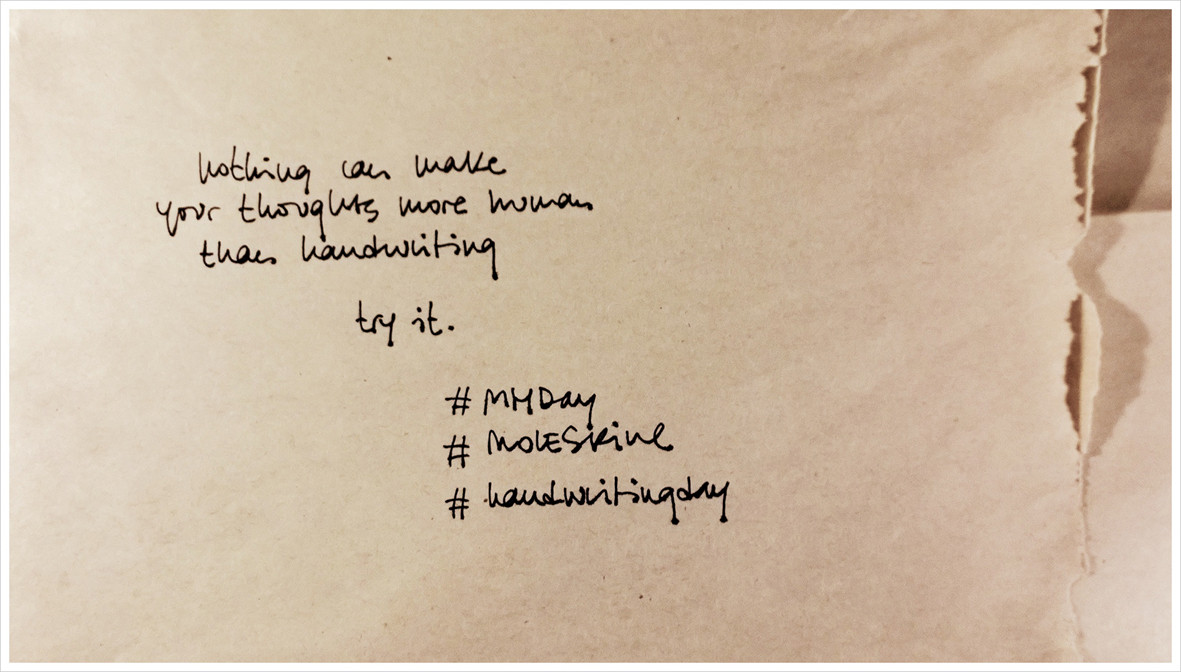 nothing can make
your thoughts more human
than handwriting
try it.
# MHDay
# MOLESkine
# handwritingday